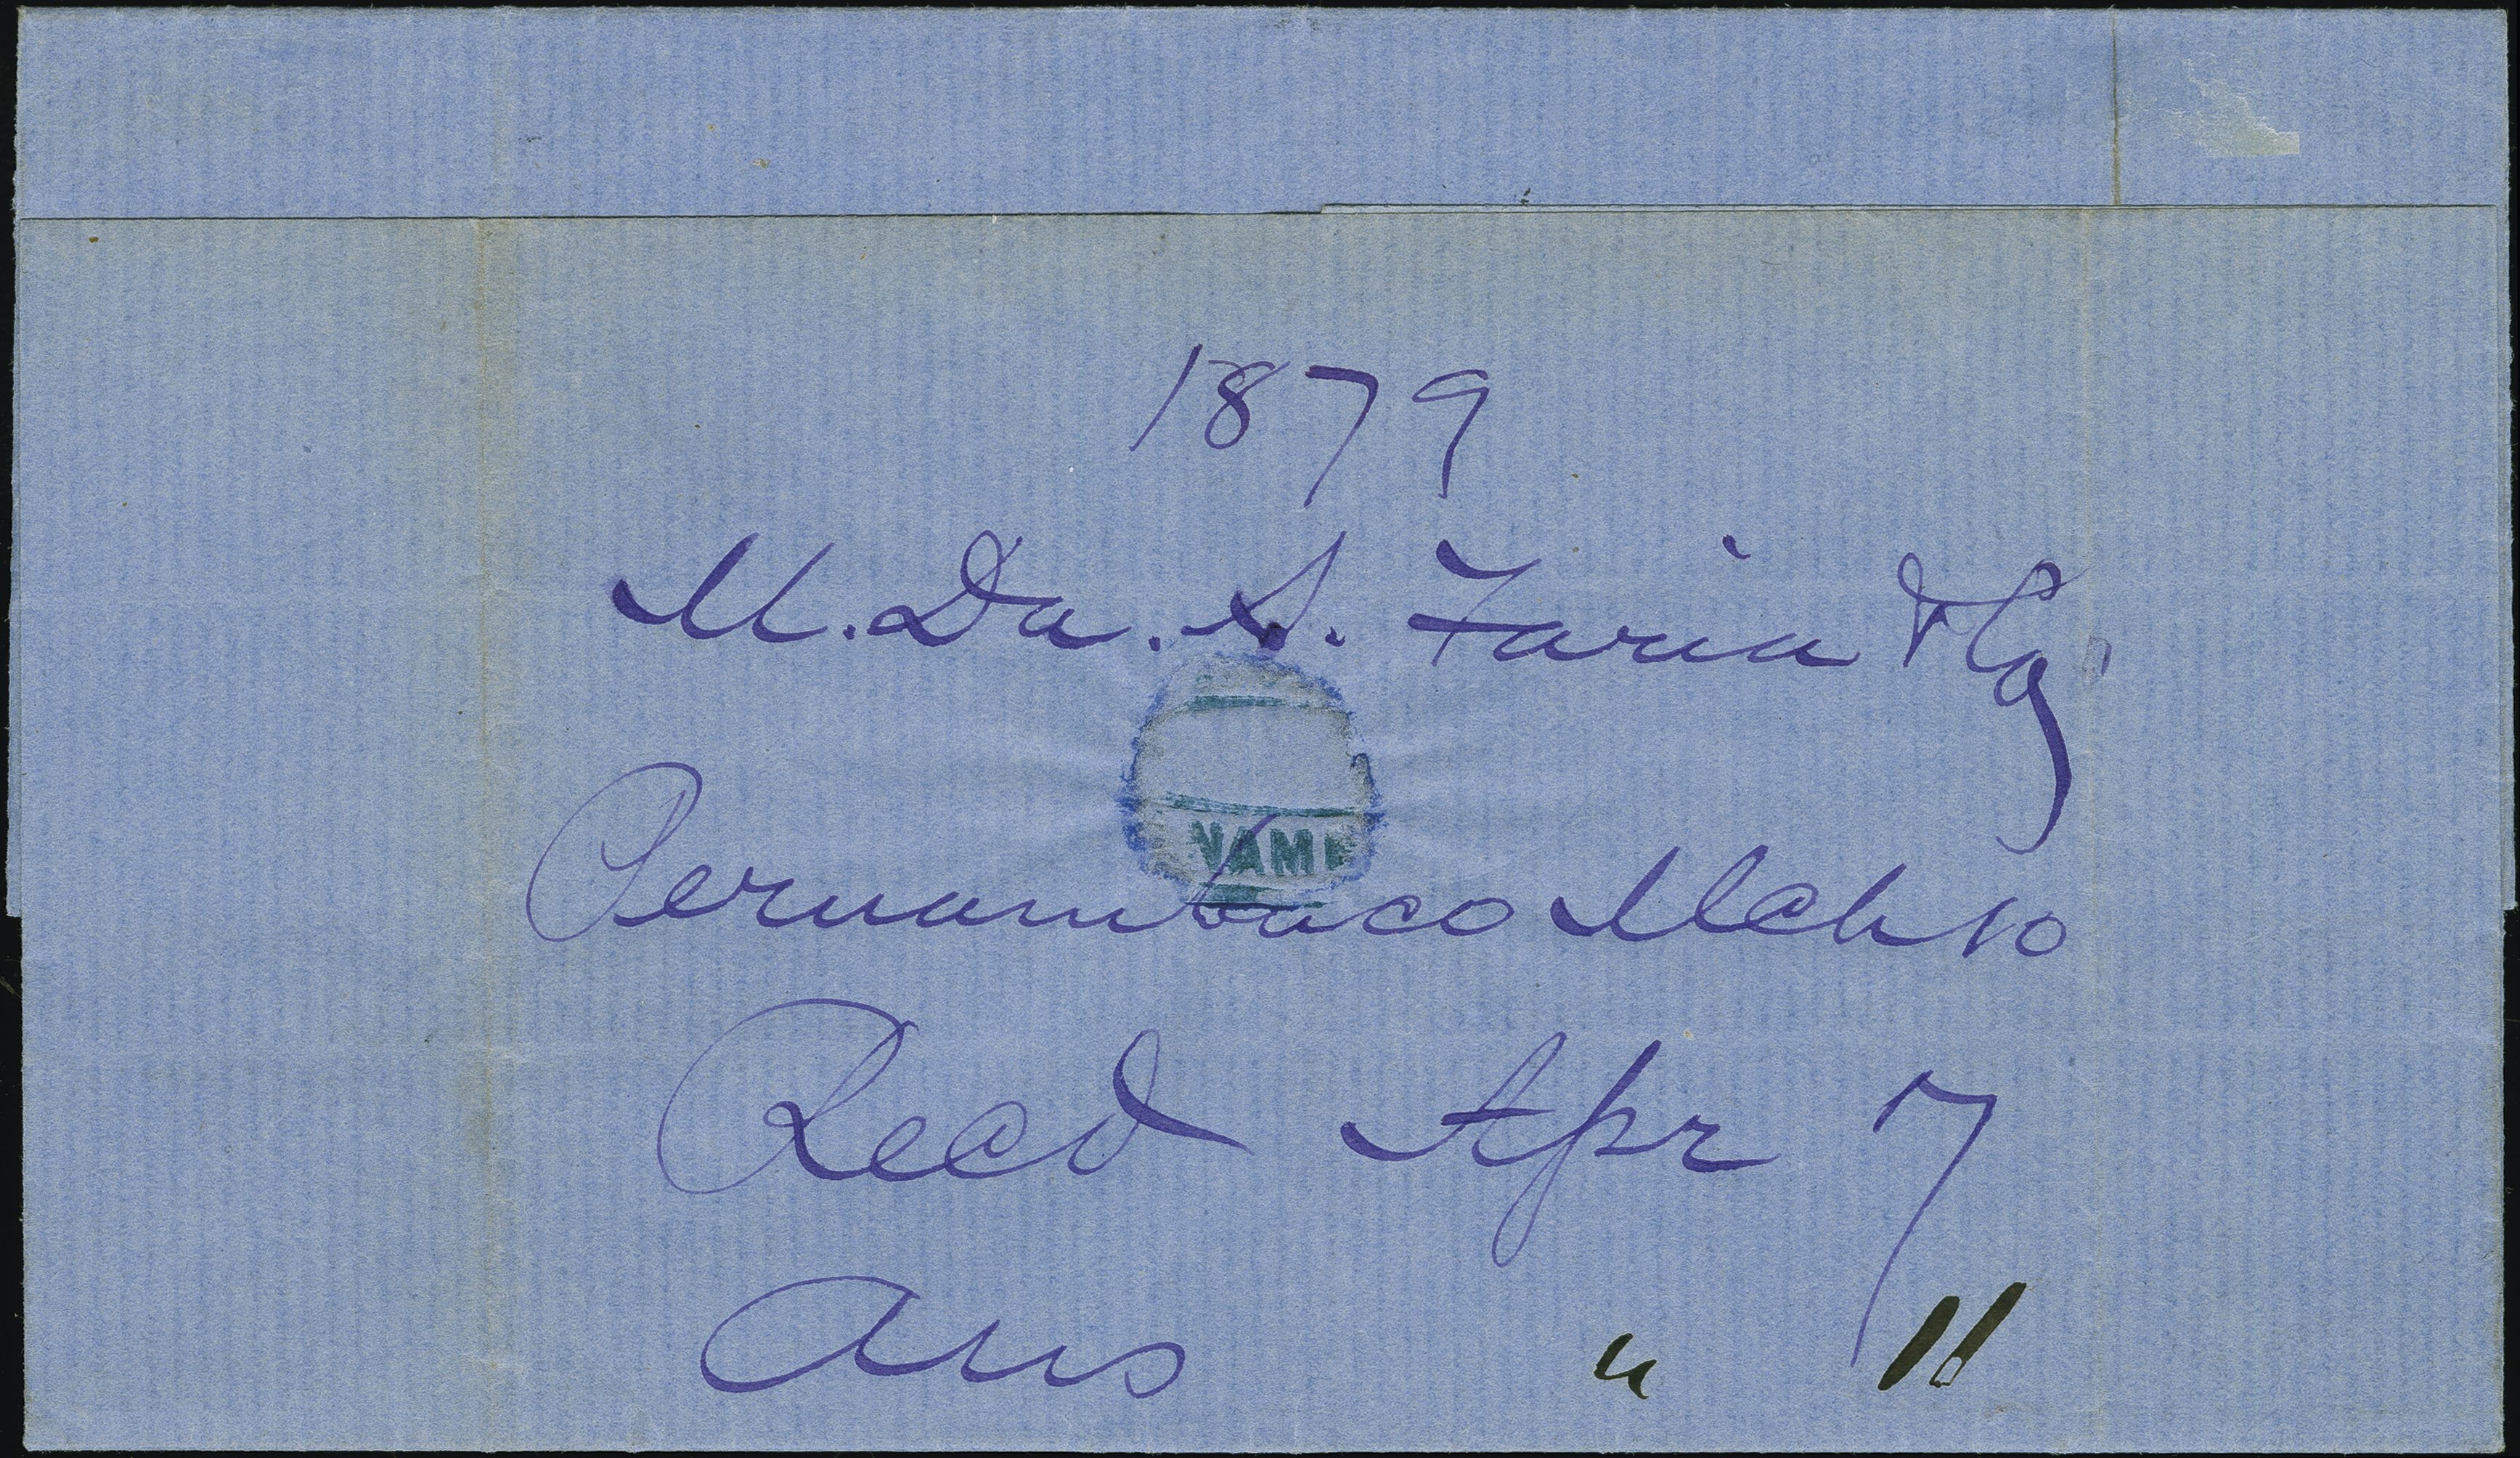 1879
M. Da. S. Faria & Co
NAM
Pernambuco Mch 10
Recd Apr 7
Ans " 11